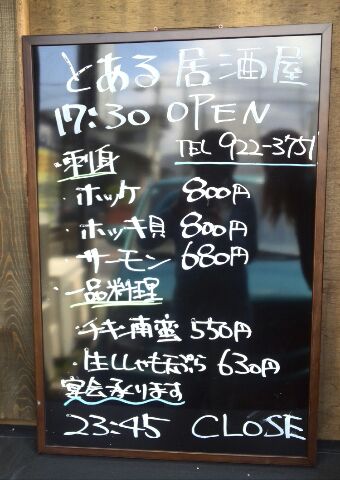 とある居酒屋
17:30 OPEN
TEL 922-3751
・刺身
・ホッケ 800円
・ホッキ貝 800円
・サーモン 680円
・一品料理
・チキン南蛮 550円
・生ししゃも天ぷら 630円
宴会承ります
23:45 CLOSE